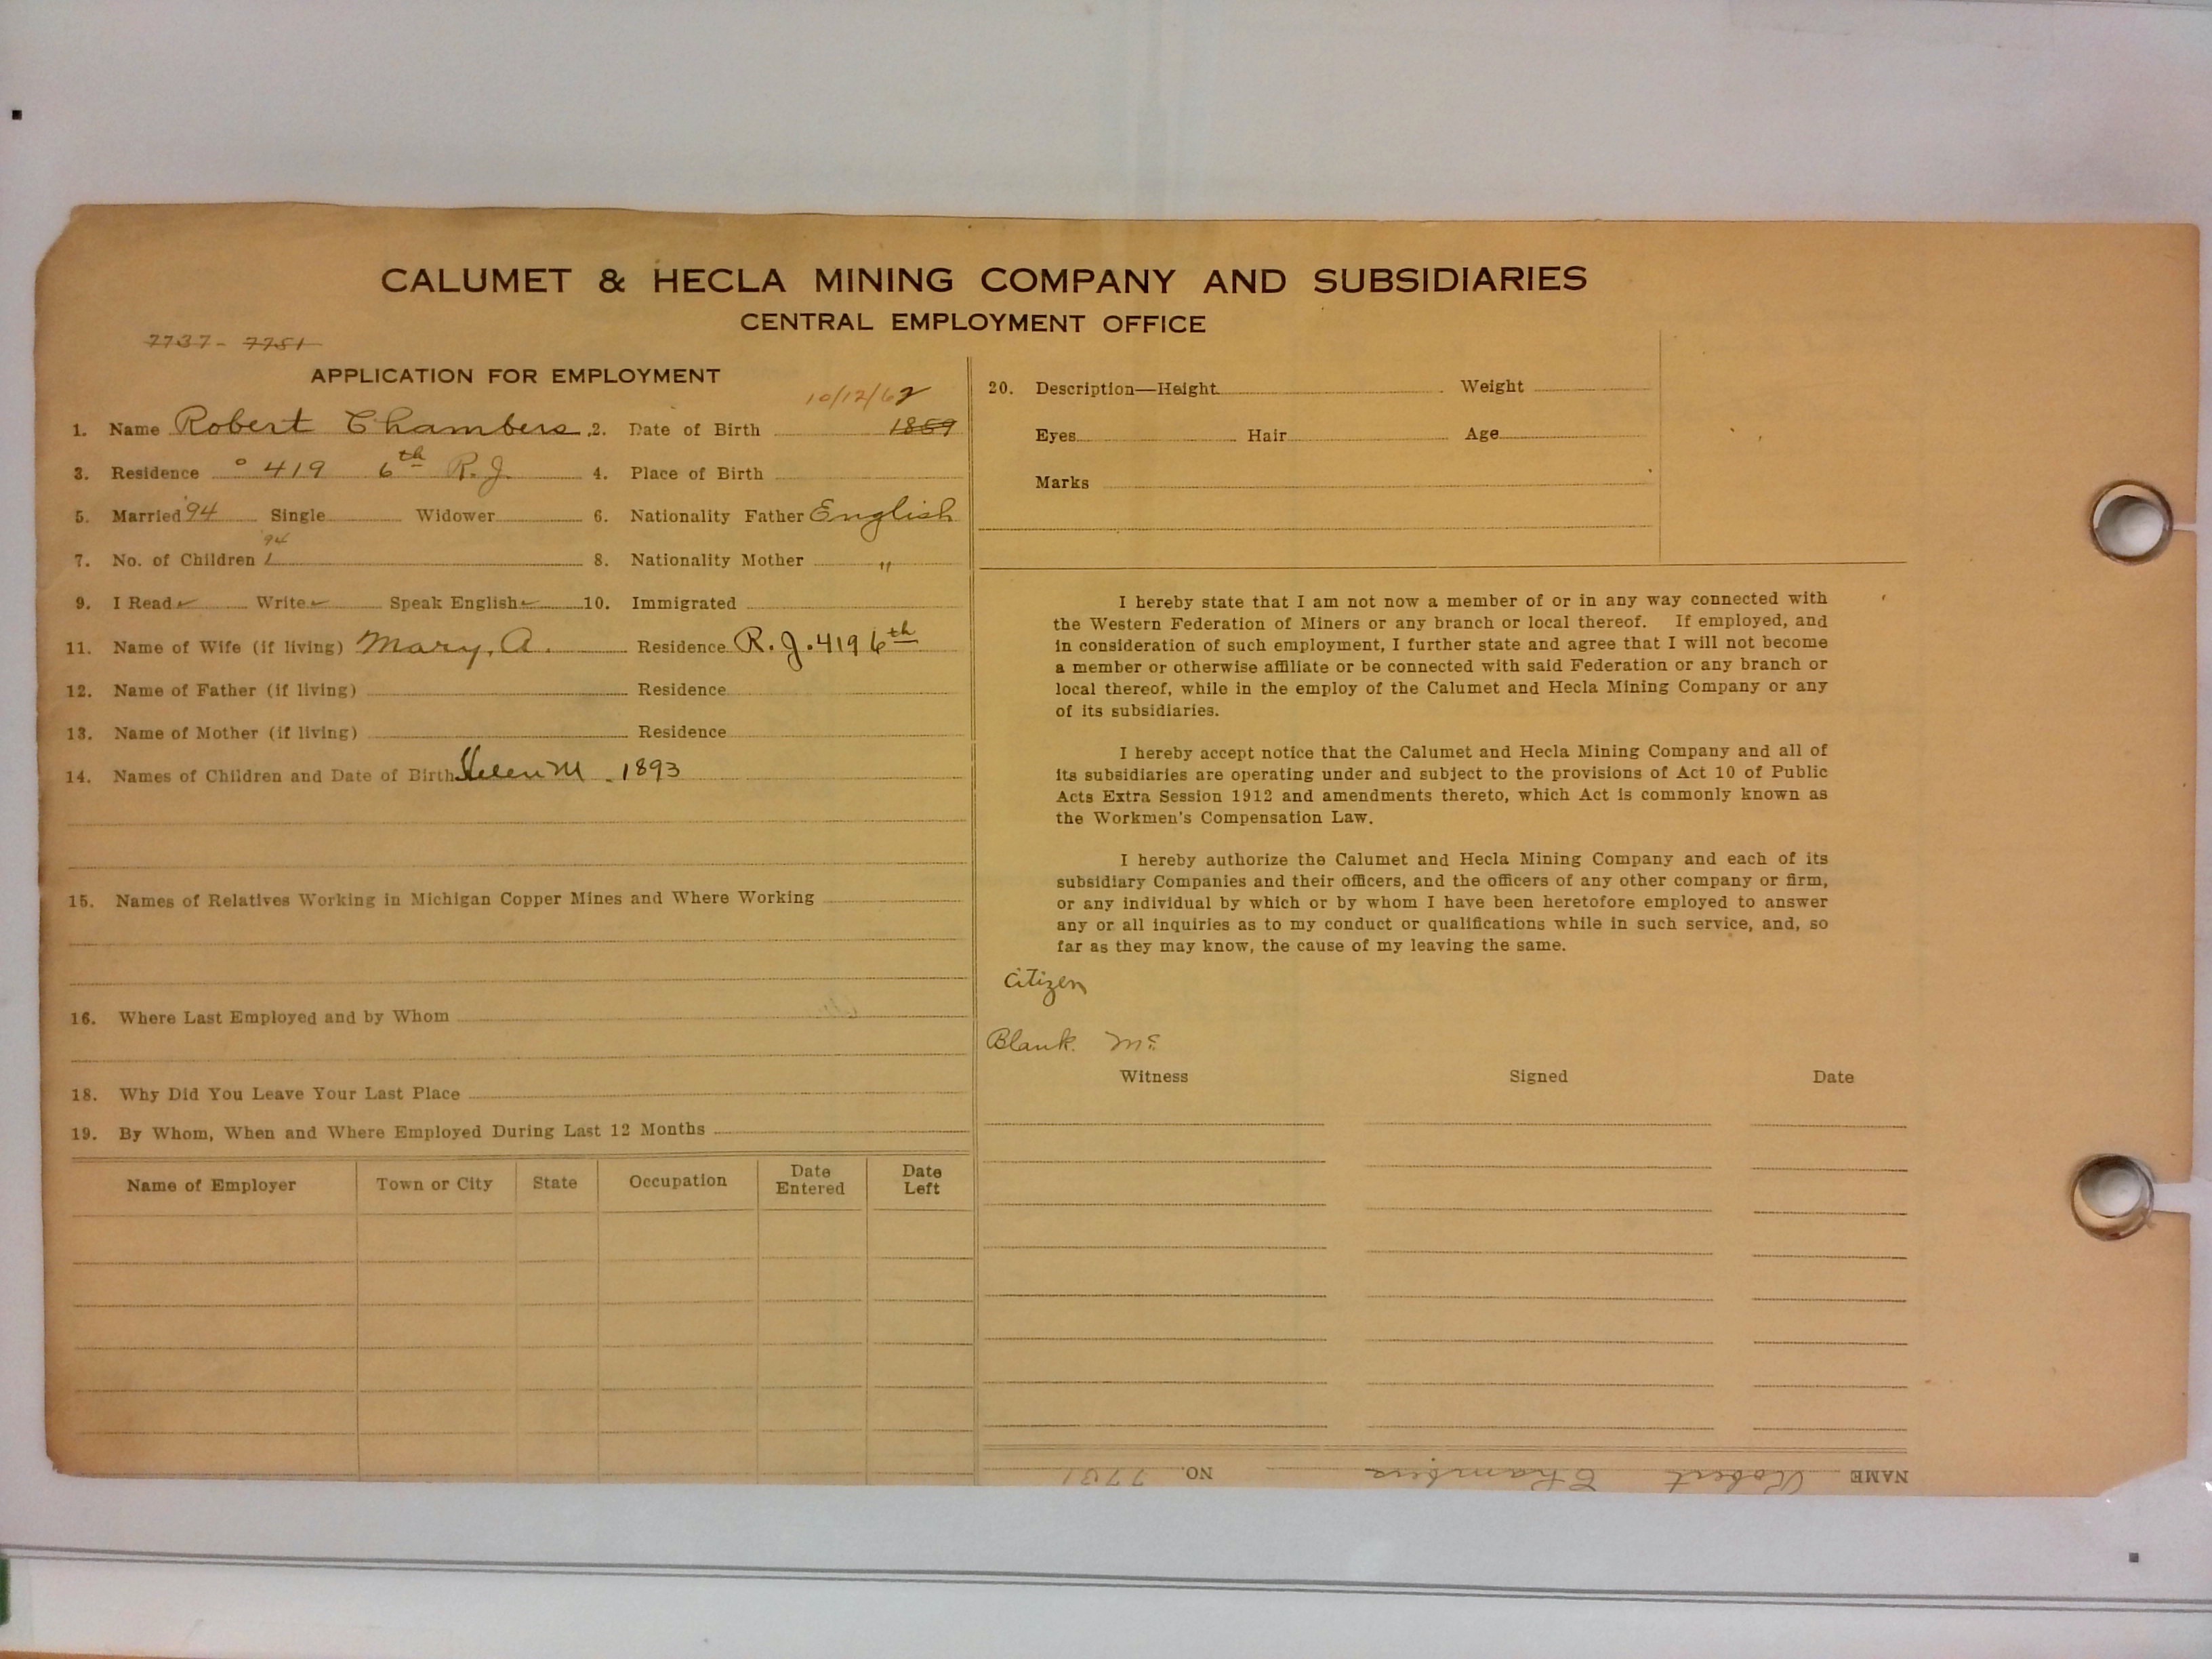 CALUMET & HECLA MINING COMPANY AND SUBSIDIARIES
CENTRAL EMPLOYMENT OFFICE
7737 - 7751
APPLICATION FOR EMPLOYMENT
10/12/62
1. Name Robert Chambers 2. Date of Birth 1859
3. Residence 419 6th R.J. 4. Place of Birth
5. Married '94 Single Widower 6. Nationality Father English
'94
7. No. of Children 1 8. Nationality Mother "
9. I Read ✓ Write ✓ Speak English ✓ 10. Immigrated
11. Name of Wife (if living) Mary, A. Residence R.J. 419 6th
12. Name of Father (if living) Residence
13. Name of Mother (if living) Residence
14. Names of Children and Date of Birth Helen M. 1893
15. Names of Relatives Working in Michigan Copper Mines and Where Working
16. Where Last Employed and by Whom
18. Why Did You Leave Your Last Place
19. By Whom, When and Where Employed During Last 12 Months
Name of Employer Town or City State Occupation Date Entered Date Left
20. Description—Height Weight
Eyes Hair Age
Marks
I hereby state that I am not now a member of or in any way connected with
the Western Federation of Miners or any branch or local thereof. If employed, and
in consideration of such employment, I further state and agree that I will not become
a member or otherwise affiliate or be connected with said Federation or any branch or
local thereof, while in the employ of the Calumet and Hecla Mining Company or any
of its subsidiaries.
I hereby accept notice that the Calumet and Hecla Mining Company and all of
its subsidiaries are operating under and subject to the provisions of Act 10 of Public
Acts Extra Session 1912 and amendments thereto, which Act is commonly known as
the Workmen's Compensation Law.
I hereby authorize the Calumet and Hecla Mining Company and each of its
subsidiary Companies and their officers, and the officers of any other company or firm,
or any individual by which or by whom I have been heretofore employed to answer
any or all inquiries as to my conduct or qualifications while in such service, and, so
far as they may know, the cause of my leaving the same.
Citizen
Blank.
Witness Signed Date
NAME Robert Chambers NO.